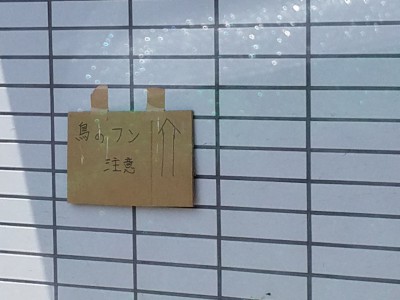 鳥のフン
注意